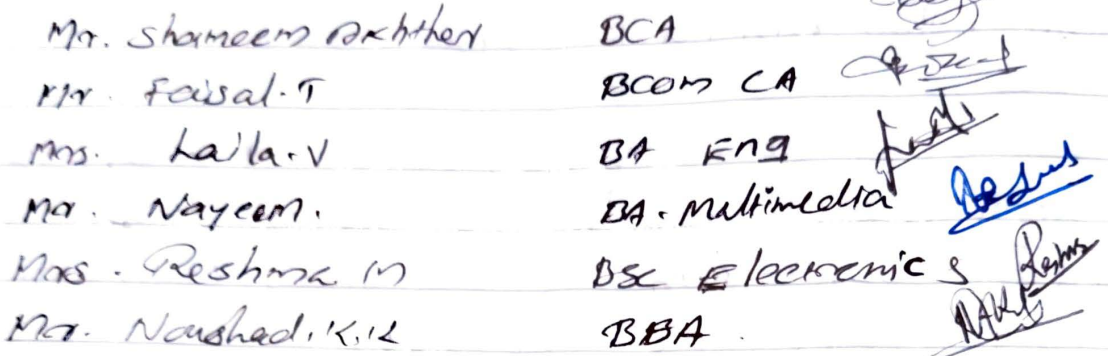 Mr. Shameem Akhther BCA
Mr. Faisal.T BCom CA
Mrs. Laila.V BA Eng
Mr. Nayeem. BA. Multimedia
Mrs. Reshma M BSc Electronics Reshma
Mr. Noushad.K.K BBA